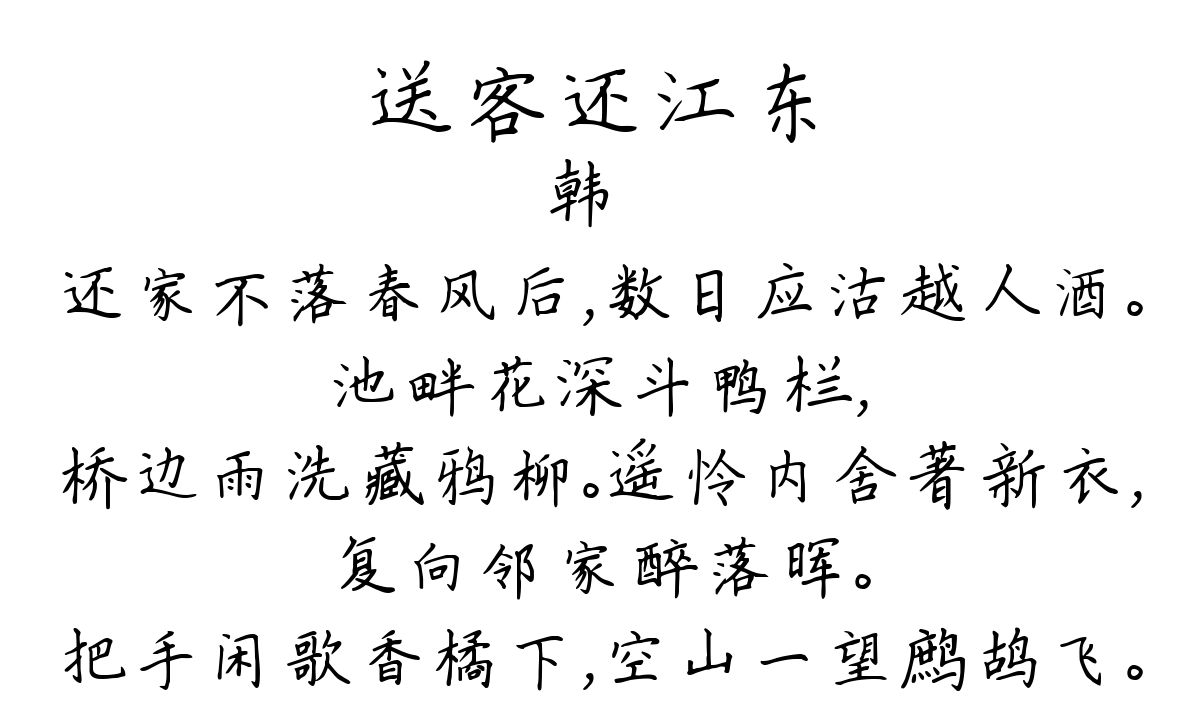 送客还江东
韩
还家不落春风后,数日应沽越人酒。
池畔花深斗鸭栏,
桥边雨洗藏鸦柳。遥怜内舍著新衣,
复向邻家醉落晖。
把手闲歌香橘下,空山一望鹧鸪飞。